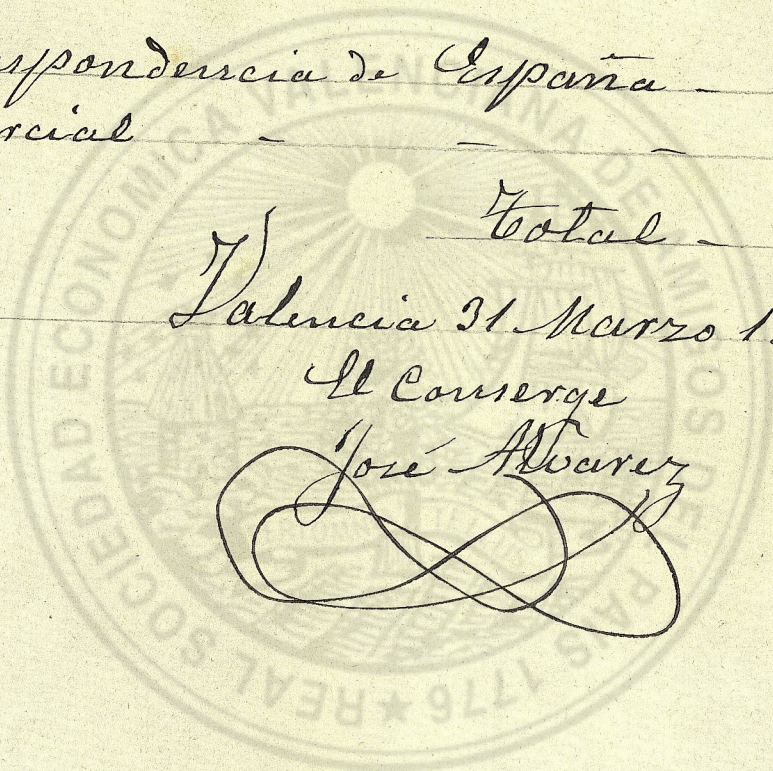 spondencia de España -
rcial - - -
Total -
Valencia 31 Marzo 1
El Conserge
José Alvarez
REAL SOCIEDAD ECONOMICA VALENCIANA DE AMIGOS DEL PAIS 1776 ★